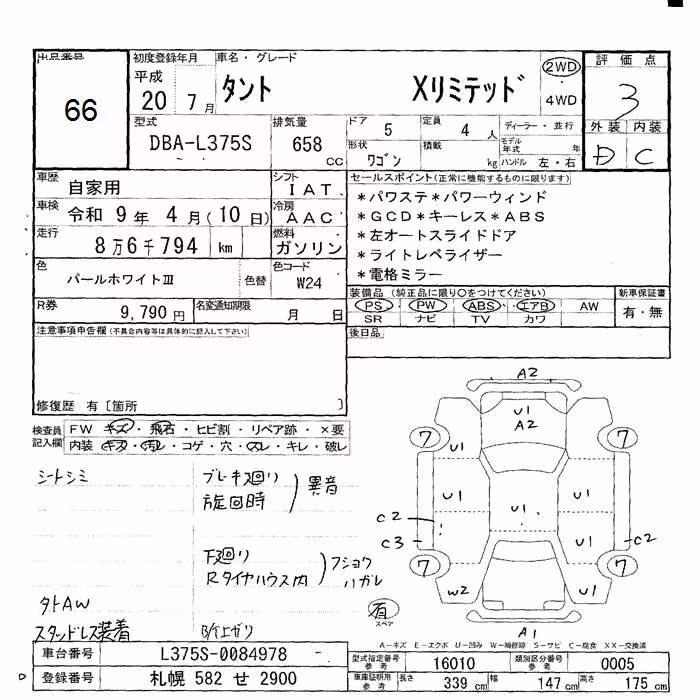 出品番号
66
初度登録年月
平成
20 7月
車名・グレード
タント Xリミテッド
2WD
・
4WD
評価点
3
外装 内装
D C
型式
DBA-L375S
排気量
658
cc
ドア
5
定員
4 人
形状
ワゴン
積載
kg
ディーラー・並行
モデル年式 年
ハンドル 左・右
車歴
自家用
車検
令和 9年 4月(10日)
走行
8万6千794 km
シフト
IAT
冷房
AAC
燃料
ガソリン
色
パールホワイトⅢ
色替
色コード
W24
R券
9,790円
名変通知期限
月 日
セールスポイント(正常に機能するものに限ります)
*パワステ*パワーウィンド
*GCD*キーレス*ABS
*左オートスライドドア
*ライトレベライザー
*電格ミラー
装備品(純正品に限り○をつけてください)
PS PW ABS エアB AW
SR ナビ TV カワ
新車保証書
有・無
後日品
注意事項申告欄(不具合内容等は具体的に記入して下さい)
修復歴 有〔箇所 〕
検査員記入欄
FW キズ・飛石・ヒビ割・リペア跡・×要
内装 キズ・汚レ・コゲ・穴・スレ・キレ・破レ
シートシミ
ブレーキ廻り
旋回時
異音
下廻り
Rタイヤハウス内
フショク
ハガレ
タトAW
スタッドレス装着
B/仕上ガリ
A2
U1
A2
7
7
U1
U1
U1
U1
C2
C3
U1
C2
7
7
W2
U1
A1
有
スペア
A-キズ E-エクボ U-凹み W-補修跡 S-サビ C-腐食 XX-交換済
車台番号
L375S-0084978
登録番号
札幌 582 せ 2900
型式指定番号
参考
16010
類別区分番号
参考
0005
車庫証明用
参考
長さ
339 cm
幅
147 cm
高さ
175 cm